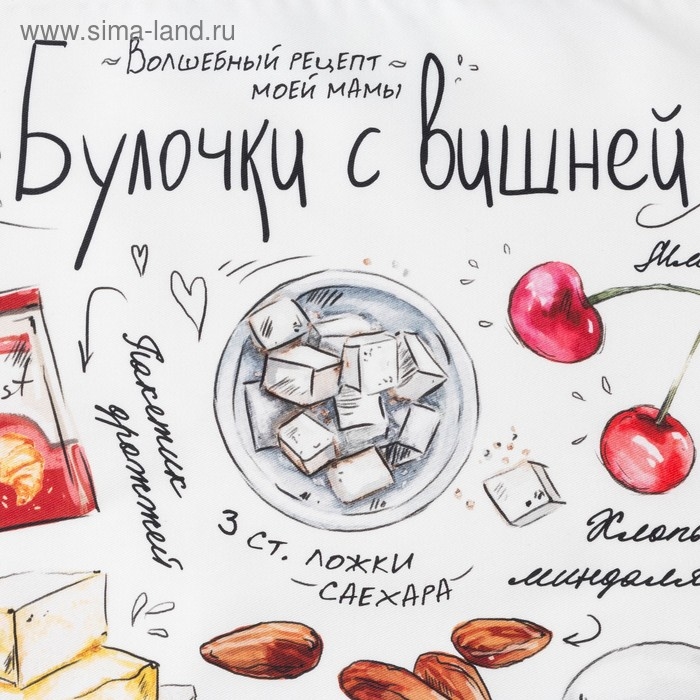 www.sima-land.ru
~Волшебный рецепт~
моей мамы
Булочки с вишней
st
Пакетик
дрожжей
3 ст. ложки
саехара
миндаля